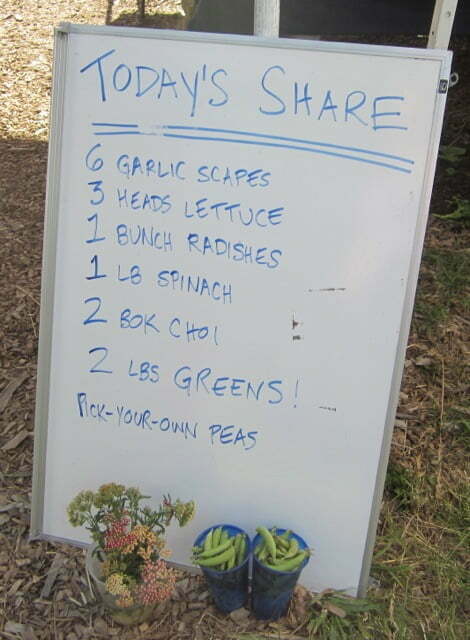 TODAY'S SHARE
6 GARLIC SCAPES
3 HEADS LETTUCE
1 BUNCH RADISHES
1 LB SPINACH
2 BOK CHOI
2 LBS GREENS!
PICK-YOUR-OWN PEAS